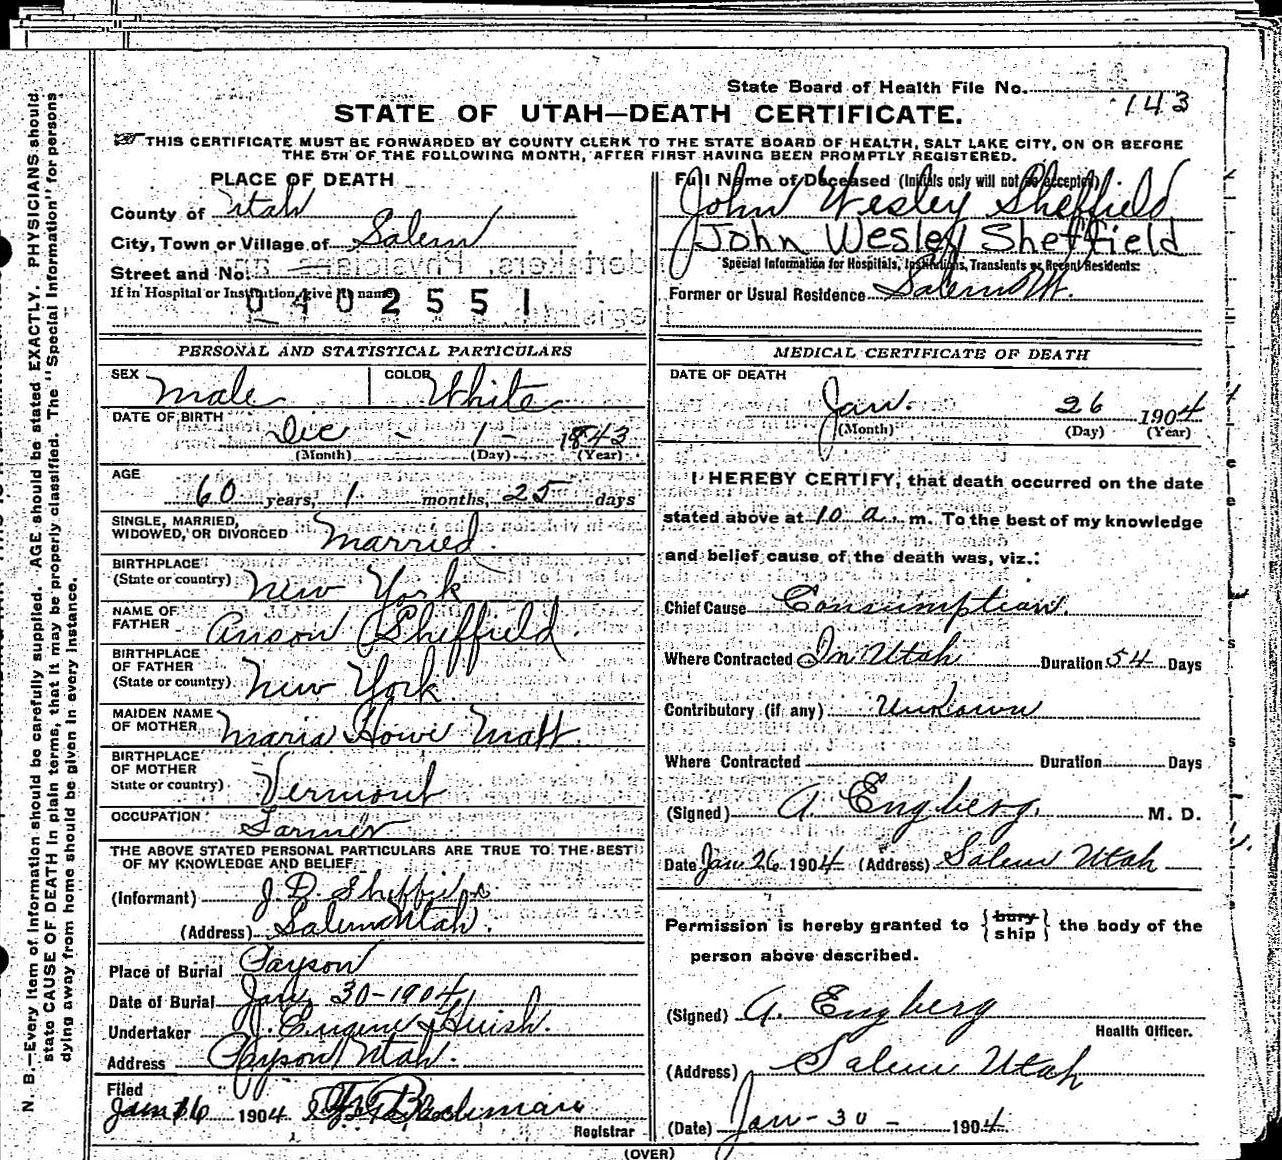 State Board of Health File No. 143
STATE OF UTAH—DEATH CERTIFICATE.
THIS CERTIFICATE MUST BE FORWARDED BY COUNTY CLERK TO THE STATE BOARD OF HEALTH, SALT LAKE CITY, ON OR BEFORE
THE 5TH OF THE FOLLOWING MONTH, AFTER FIRST HAVING BEEN PROMPTLY REGISTERED.
PLACE OF DEATH
County of Utah
City, Town or Village of Salem
Street and No.
If in Hospital or Institution, give its name
0402551
Full Name of Deceased (Initials only will not be accepted)
John Wesley Sheffield
John Wesley Sheffield
Special Information for Hospitals, Institutions, Transients or Recent Residents:
Former or Usual Residence Salem Ut.
PERSONAL AND STATISTICAL PARTICULARS
SEX Male COLOR White
DATE OF BIRTH Dec - 1 - 1843
(Month) (Day) (Year)
AGE 60 years, 1 months, 25 days
SINGLE, MARRIED,
WIDOWED, OR DIVORCED Married.
BIRTHPLACE
(State or country) New York
NAME OF
FATHER Anson Sheffield.
BIRTHPLACE
OF FATHER
(State or country) New York.
MAIDEN NAME
OF MOTHER Maria Howe Matt.
BIRTHPLACE
OF MOTHER
State or country) Vermont
OCCUPATION Farmer
THE ABOVE STATED PERSONAL PARTICULARS ARE TRUE TO THE BEST
OF MY KNOWLEDGE AND BELIEF.
(Informant) J. D. Sheffield
(Address) Salem Utah.
Place of Burial Payson
Date of Burial Jan, 30-1904
Undertaker J. Eugene Huish.
Address Payson Utah.
Filed
Jan 1904
Registrar
MEDICAL CERTIFICATE OF DEATH
DATE OF DEATH
Jan. 26 1904
(Month) (Day) (Year)
I HEREBY CERTIFY, that death occurred on the date
stated above at 10 a. m. To the best of my knowledge
and belief cause of the death was, viz.:
Chief Cause Consumption.
Where Contracted In Utah Duration 54 Days
Contributory (if any) Unknown
Where Contracted Duration Days
(Signed) A. Engberg. M. D.
Date Jan 26 1904 (Address) Salem Utah
Permission is hereby granted to { bury ship } the body of the
person above described.
(Signed) A. Engberg
Health Officer.
(Address) Salem Utah
(Date) Jan - 30 - 1904
(OVER)
N. B.—Every item of information should be carefully supplied. AGE should be stated EXACTLY. PHYSICIANS should
state CAUSE OF DEATH in plain terms, that it may be properly classified. The "Special Information" for persons
dying away from home should be given in every instance.